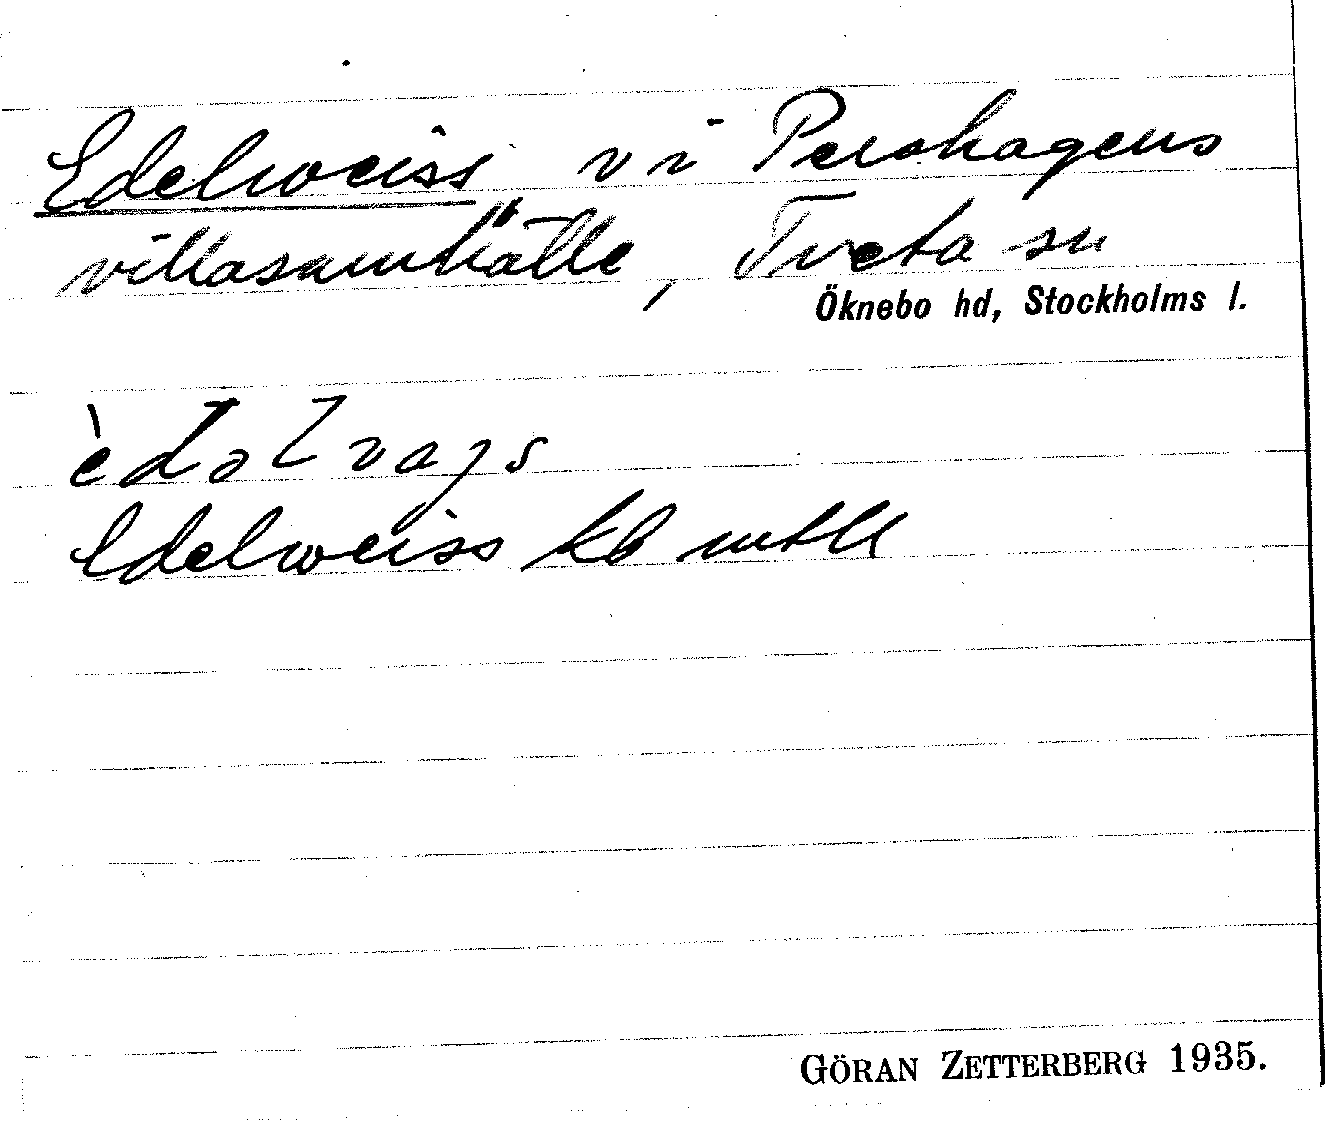 Edelweiss v i Pershagens
villasamhälle, Tveta sn
Öknebo hd, Stockholms l.
èdəlvajs
Edelweiss kb mtll
GÖRAN ZETTERBERG 1935.